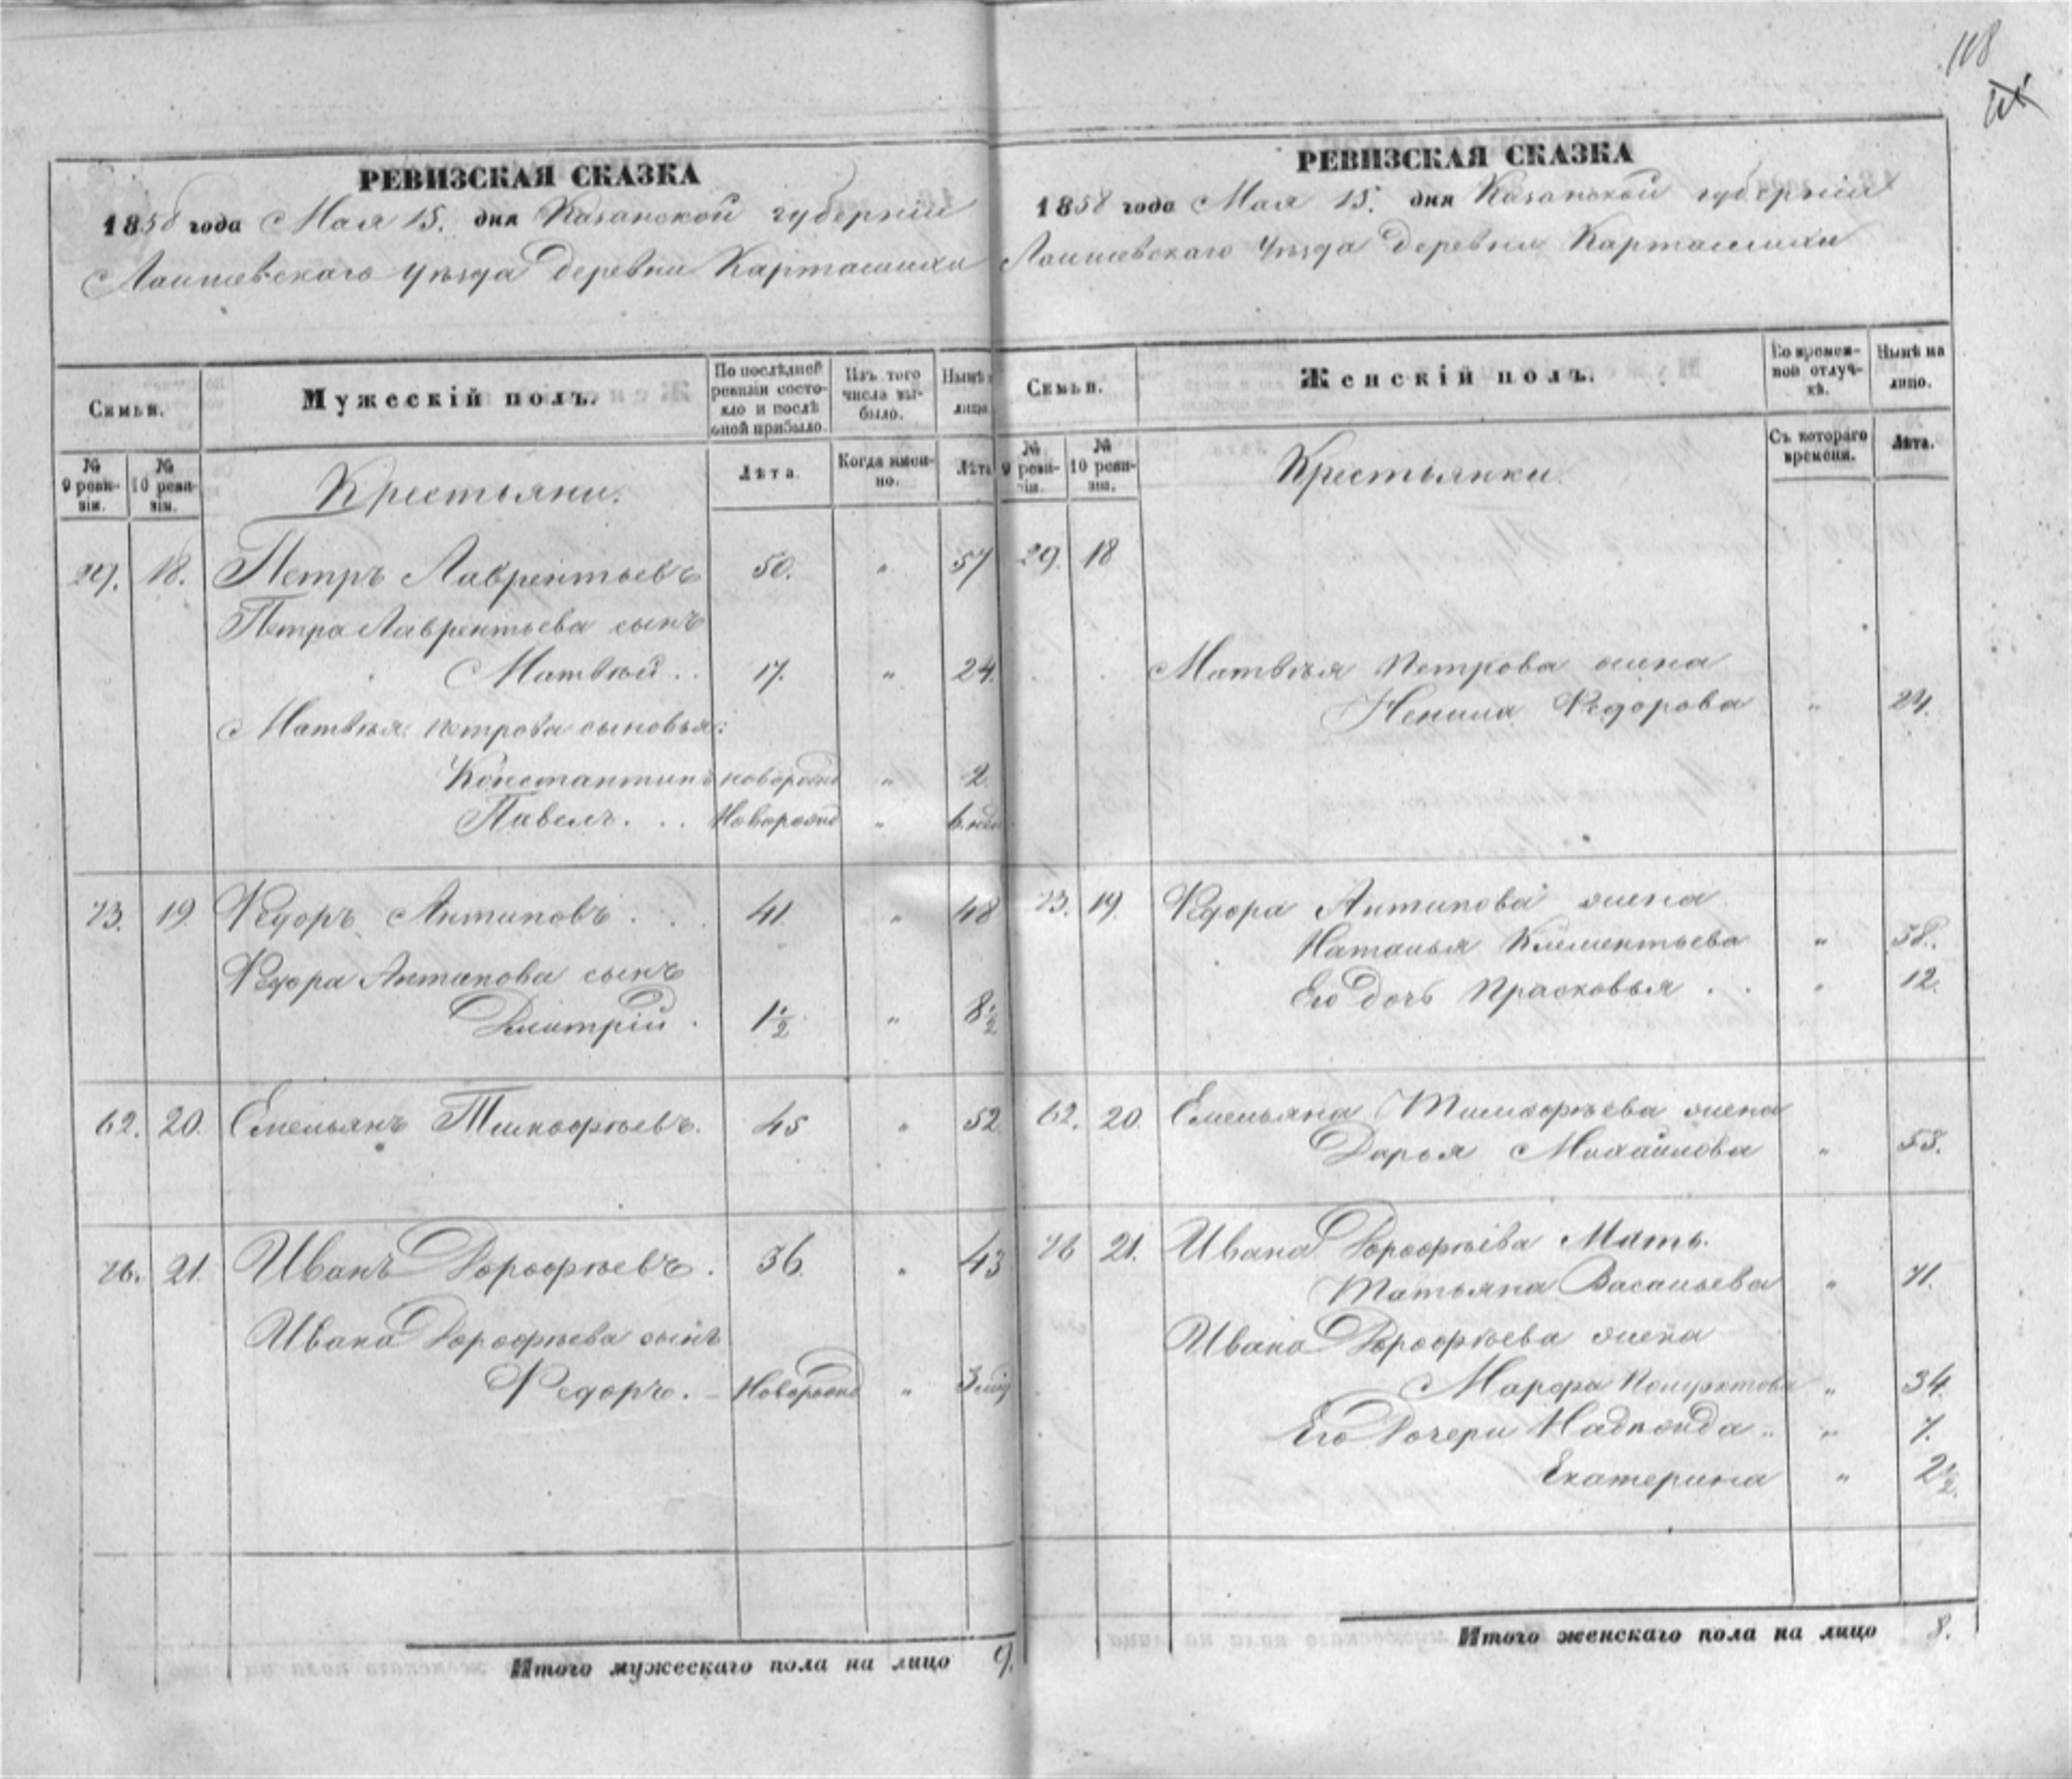 118
РЕВИЗСКАЯ СКАЗКА
1858 года Мая 15. дня Казанской губерніи
Лаишевскаго уѣзда деревни Карташихи
Семьи.
Мужескій полъ.
По послѣдней ревизіи состояло и послѣ оной прибыло.
Изъ того числа выбыло.
Нынѣ лицо.
№ 9 ревизіи.
№ 10 ревизіи.
Крестьяни.
Лѣта.
Когда именно.
Лѣта
29. 18. Петръ Лаврентьевъ 50. " 57
Петра Лаврентьева сынъ
Матвѣй . . 17. " 24.
Матвѣя Петрова сыновья:
Константинъ новорожд " 2
Павелъ . . . Новорожд " 6 нед
23. 19. Ѳедоръ Антиповъ . . . 41. " 48
Ѳедора Антипова сынъ
Дмитрій . 1½ " 8½
62. 20. Емельянъ Тимофѣевъ. 45 " 52
26. 21. Иванъ Дорофѣевъ. 36. " 43
Ивана Дорофѣева сынъ
Ѳедоръ. - Новорожд " 3 мѣс
Итого мужескаго пола на лицо 9.
РЕВИЗСКАЯ СКАЗКА
1858 года Мая 15. дня Казанской губерніи
Лаишевскаго уѣзда деревни Карташихи
Семьи.
Женскій полъ.
Во временной отлучкѣ.
Нынѣ на лицо.
№ 9 ревизіи.
№ 10 ревизіи.
Крестьянки.
Съ котораго времени.
Лѣта.
29. 18
Матвѣя Петрова жена
Ненила Ѳедорова " 24.
23. 19. Ѳедора Антипова жена
Наталья Клементьева " 38.
Его дочь Прасковья . . " 12.
62. 20. Емельяна Тимофѣева жена
Дарья Михайлова " 53.
26 21. Ивана Дорофѣева Мать.
Татьяна Васильева " 71.
Ивана Дорофѣева жена
Марфа Полуектова " 34.
Его Дочери Надежда .. " 7.
Екатерина " 2½.
Итого женскаго пола на лицо 8.